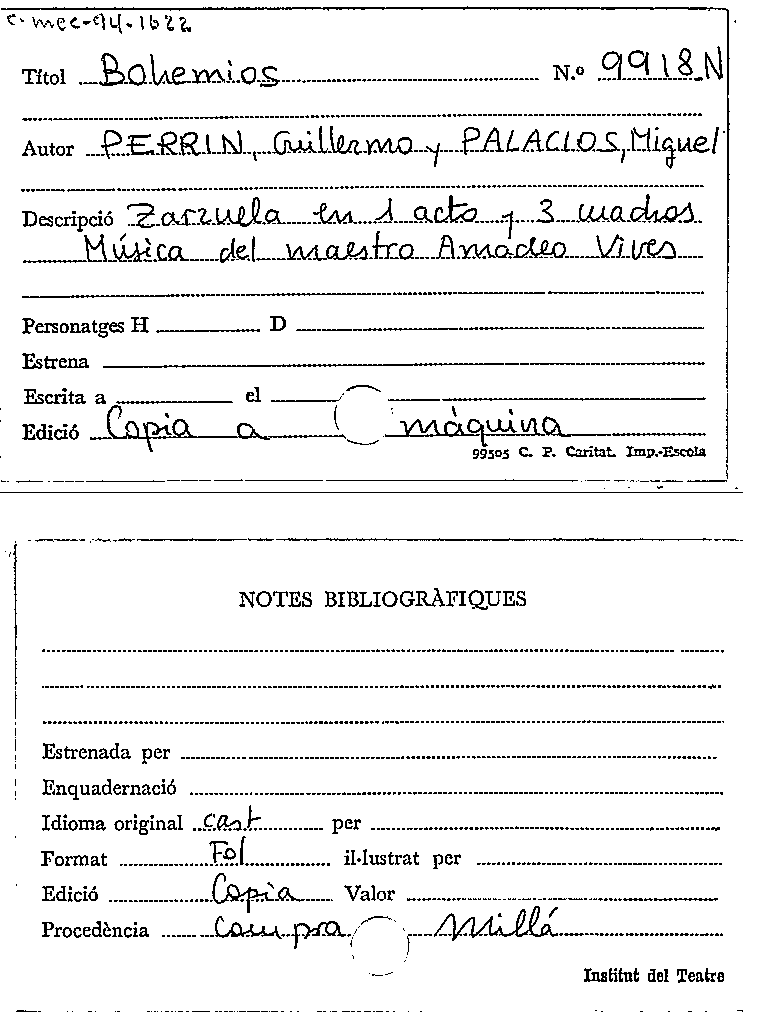 c. mec-94-1622
Títol Bohemios N.º 9918 N
Autor PERRIN, Guillermo y PALACIOS, Miguel
Descripció Zarzuela en 1 acto y 3 cuadros
Música del maestro Amadeo Vives
Personatges H D
Estrena
Escrita a el
Edició Copia a máquina
99505 C. P. Caritat. Imp.-Escola
NOTES BIBLIOGRÀFIQUES
Estrenada per
Enquadernació
Idioma original cast per
Format Fol il·lustrat per
Edició Copia Valor
Procedència compra Millá
Institut del Teatre